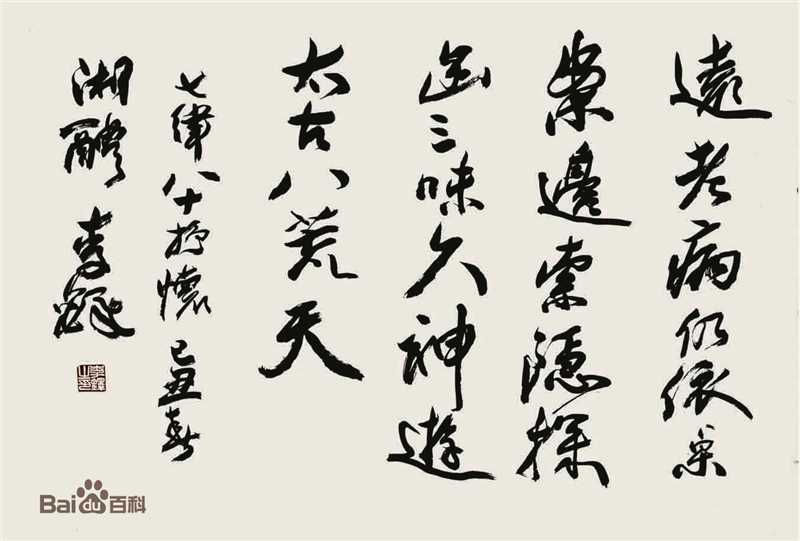 遠老病仍依桌
案邊索隱探
幽三味久神遊
太古八荒天
七律八十抒懷 己丑春
湘醴 李鐸
Baidu百科